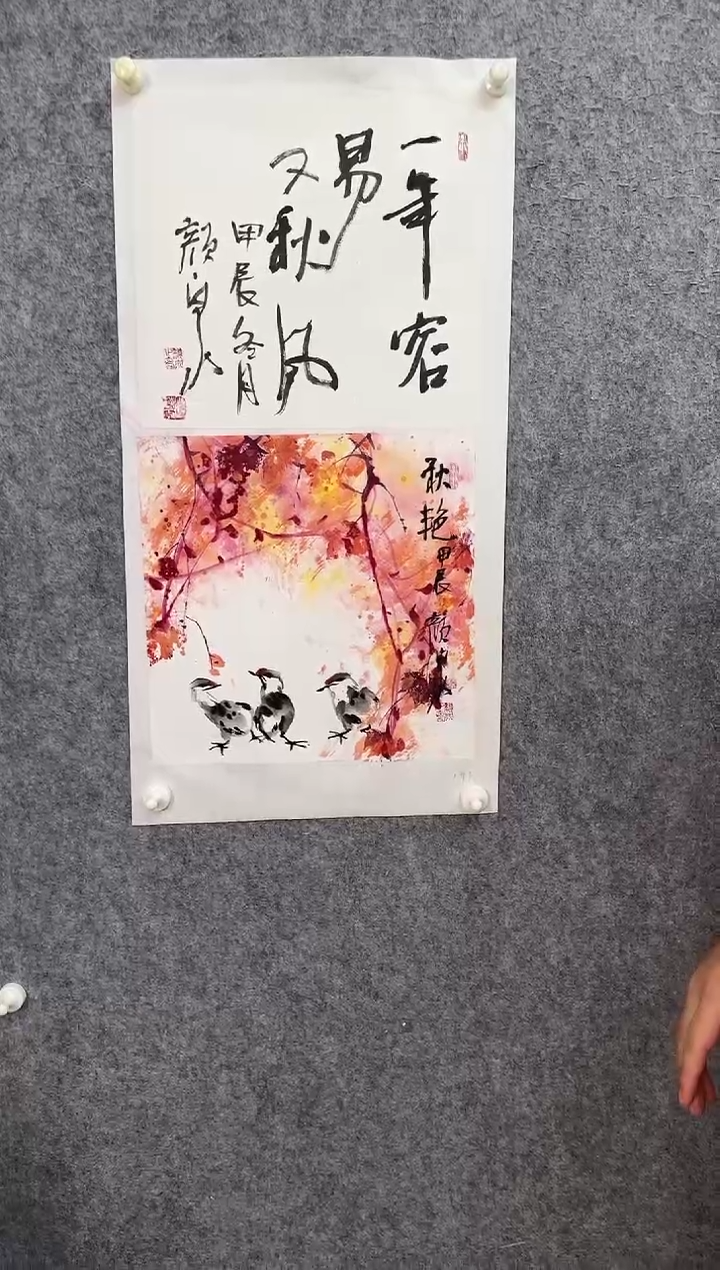 一年容
易
又秋风
甲辰冬月
颜泉
秋艳甲辰颜泉